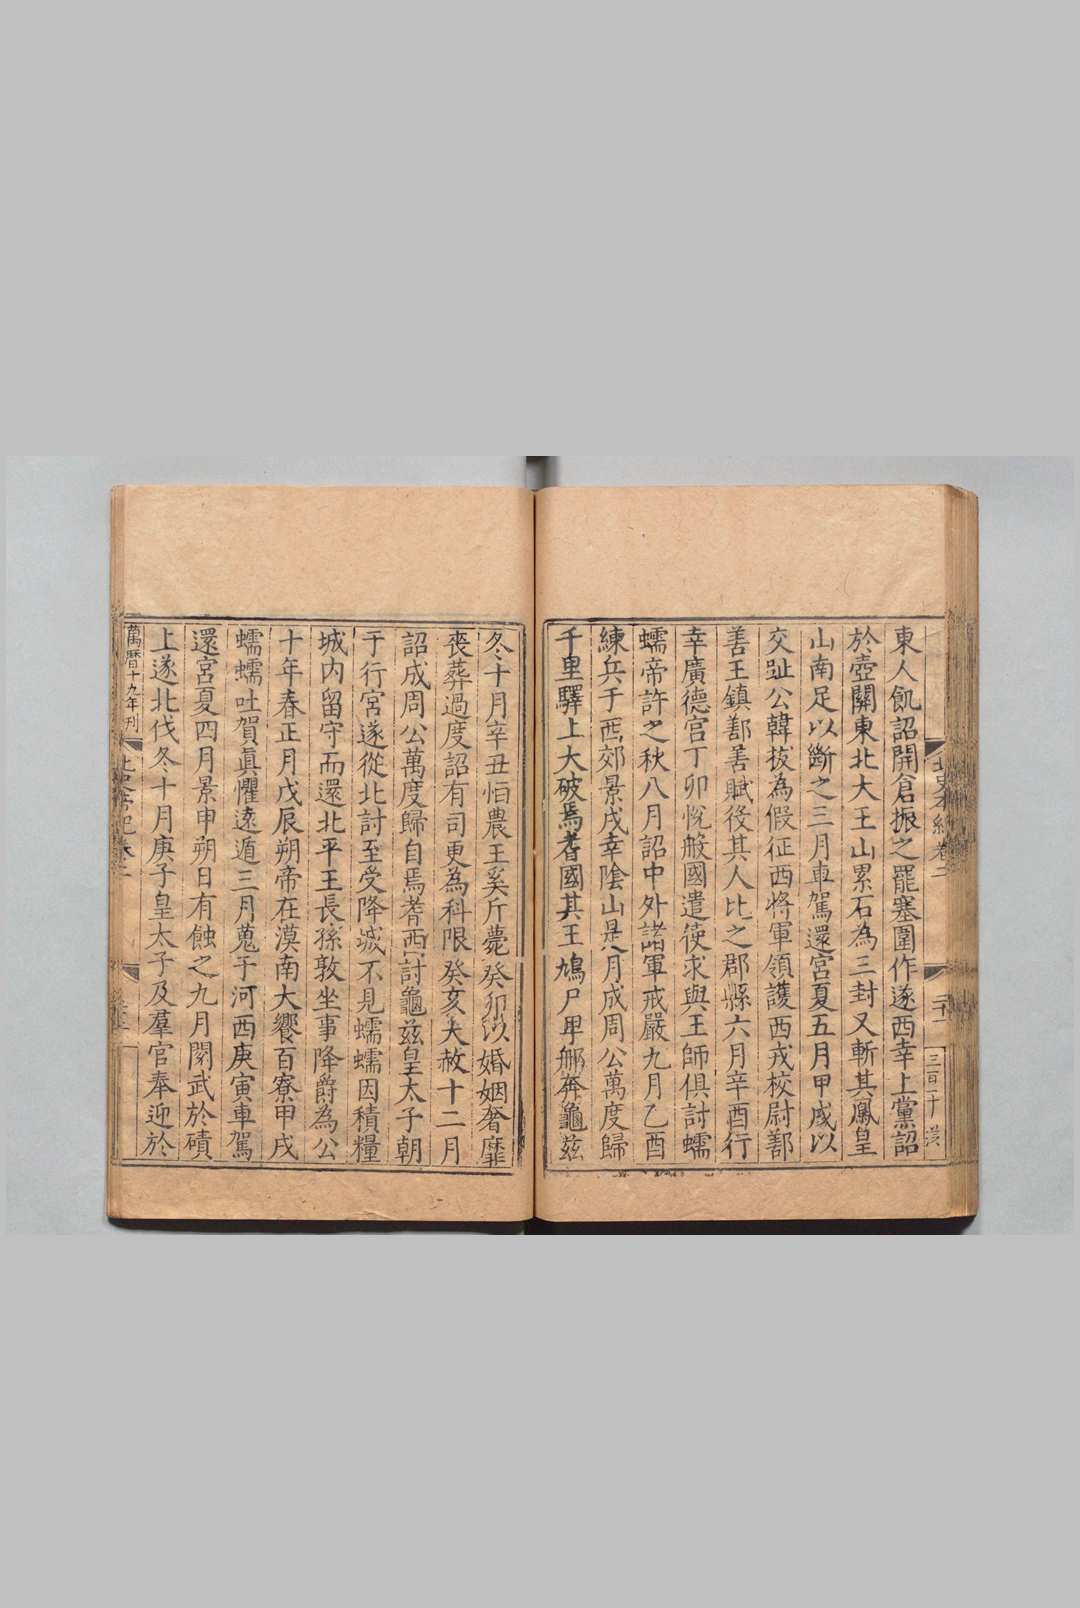 東人飢詔開倉振之罷塞圍作遂西幸上黨詔
於壺關東北大王山累石為三封又斬其鳳皇
山南足以斷之三月車駕還宮夏五月甲戌以
交阯公韓拔為假征西將軍領護西戎校尉鄯
善王鎮鄯善賦役其人比之郡縣六月辛酉行
幸廣德宮丁卯悅般國遣使求與王師俱討蠕
蠕帝許之秋八月詔中外諸軍戒嚴九月乙酉
練兵于西郊景戌幸陰山是月成周公萬度歸
千里驛上大破焉耆國其王鳩尸卑那奔龜茲
冬十月辛丑恒農王奚斤薨癸卯以婚姻奢靡
喪葬過度詔有司更為科限癸亥大赦十二月
詔成周公萬度歸自焉耆西討龜茲皇太子朝
于行宮遂從北討至受降城不見蠕蠕因積糧
城内留守而還北平王長孫敦坐事降爵為公
十年春正月戊辰朔帝在漠南大饗百寮甲戌
蠕蠕吐賀真懼遠遁三月蒐于河西庚寅車駕
還宮夏四月景申朔日有蝕之九月閱武於磧
上遂北伐冬十月庚子皇太子及羣官奉迎於
萬曆十九年刊